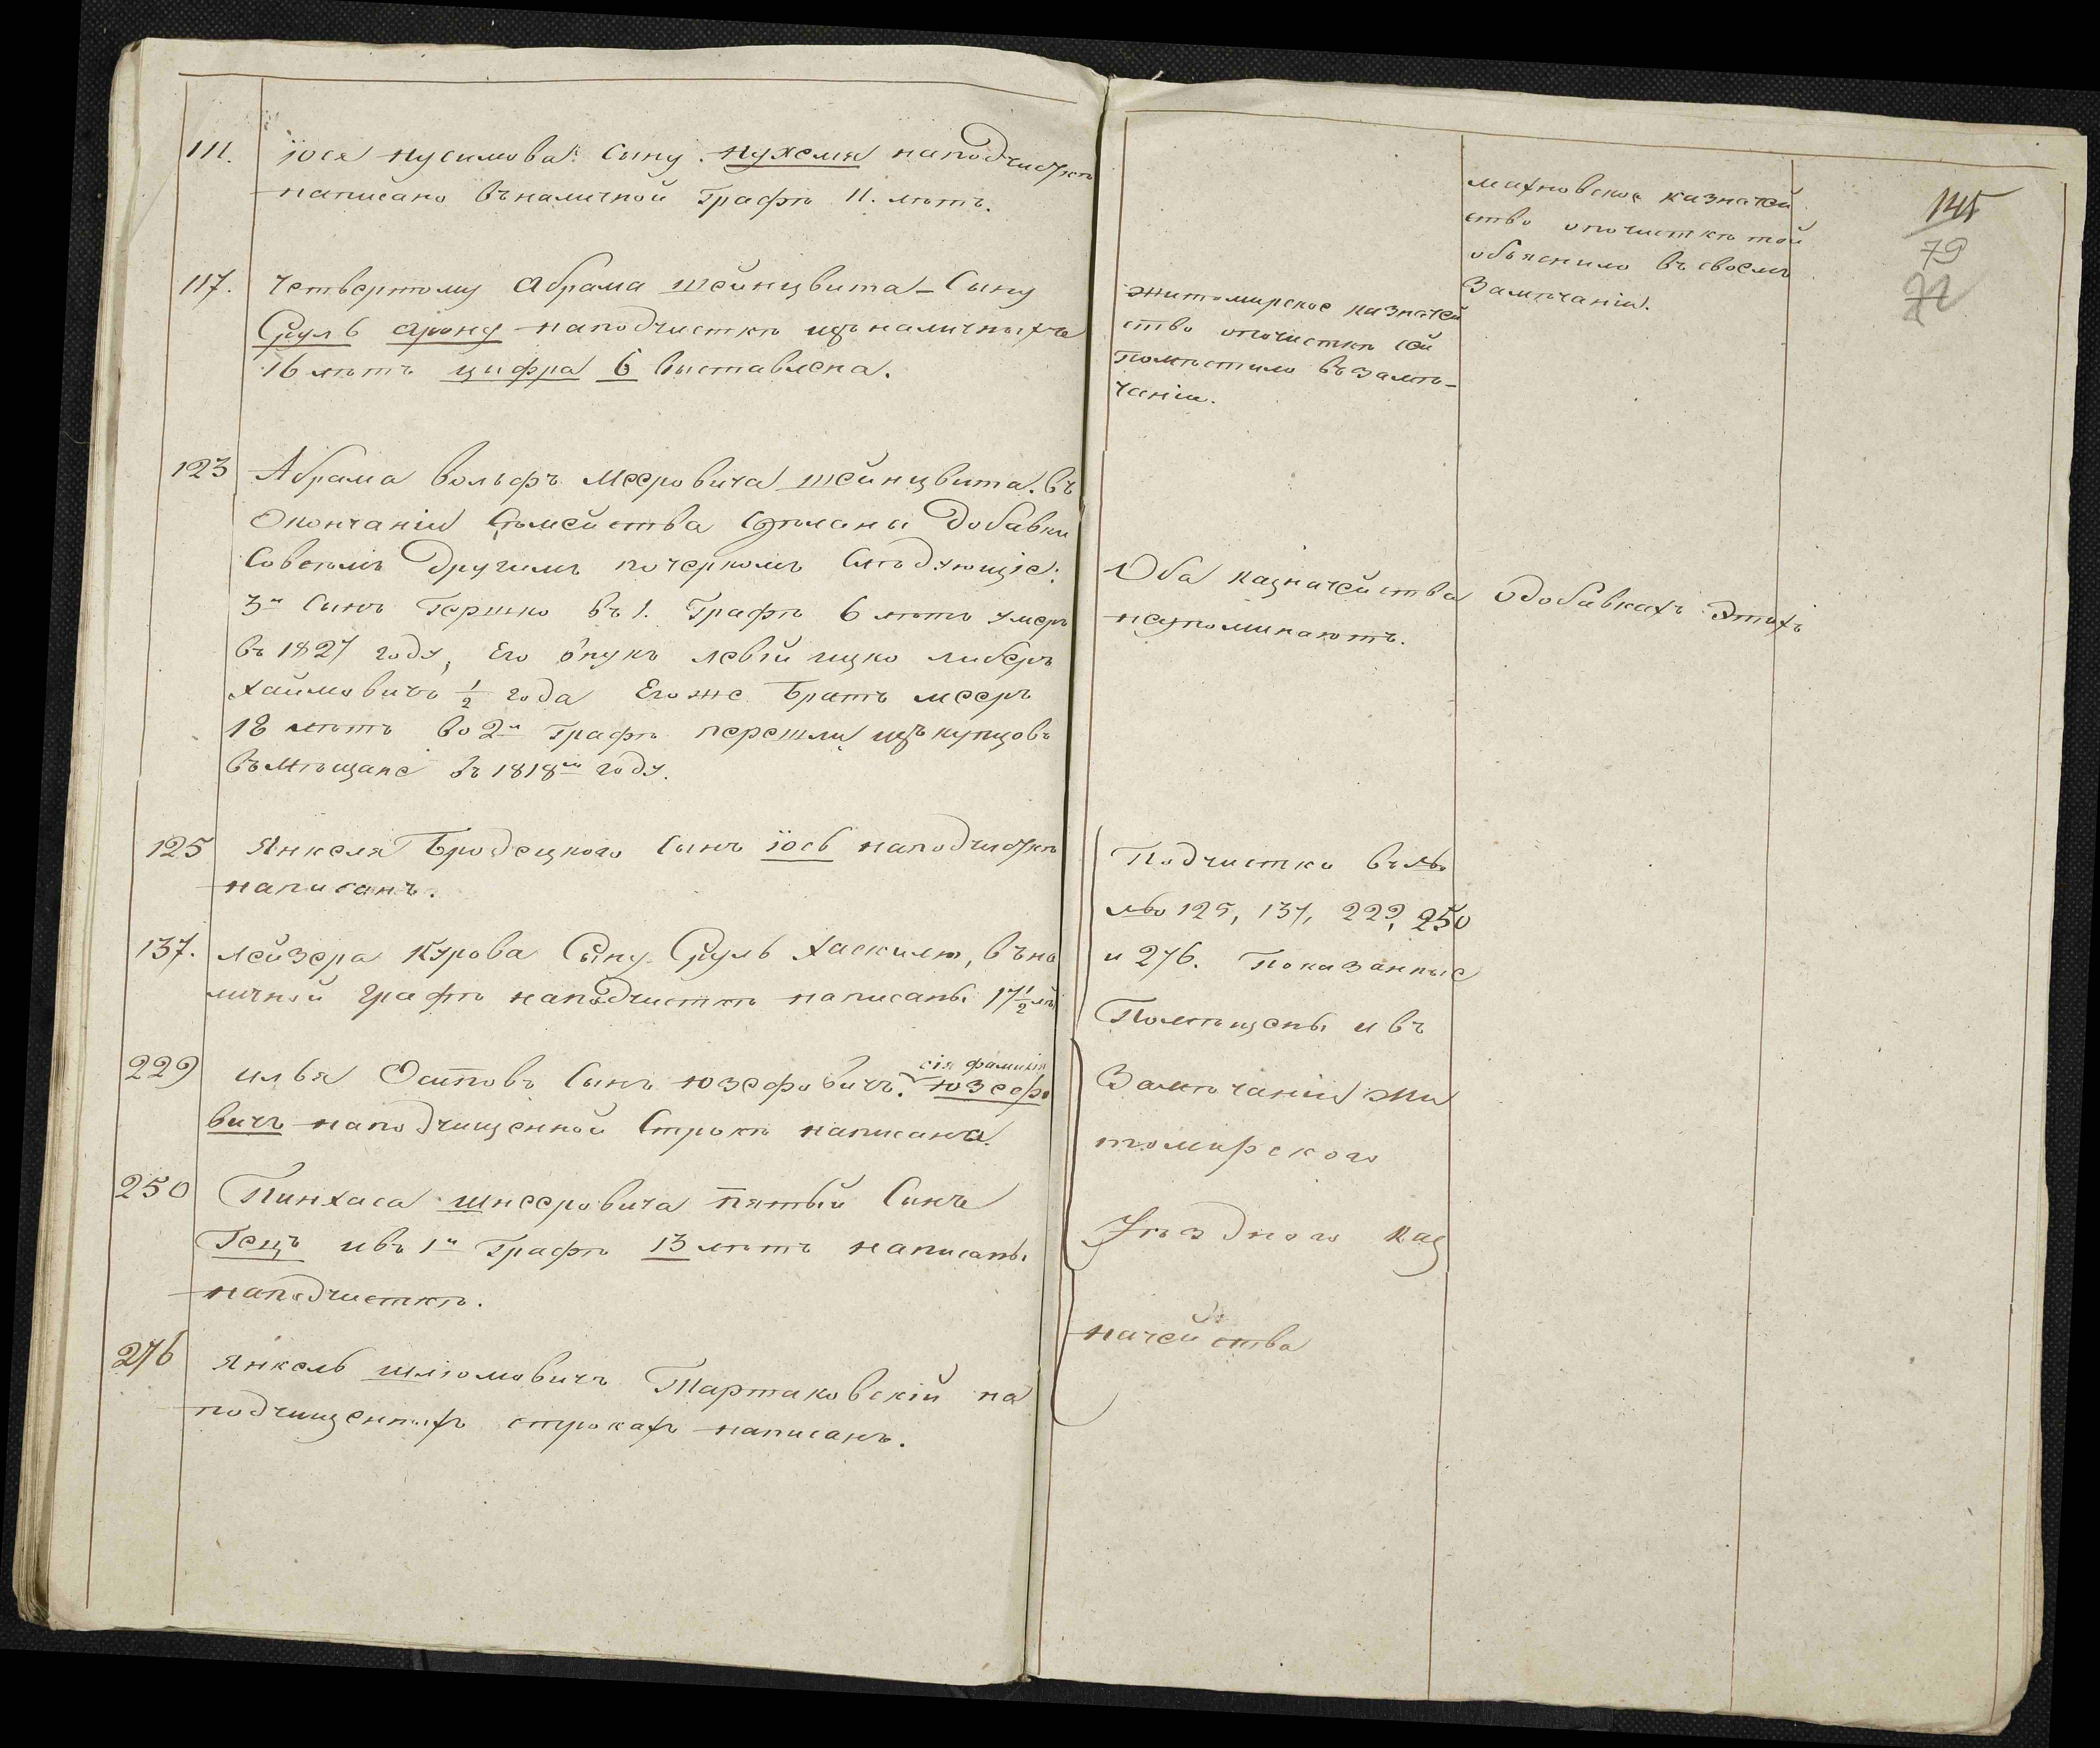 111. Іося нусимова: Сыну. нухемя наподчисткѣ
написано въ наличной графѣ 11. лѣтъ.
117. Четвертому Абрама шейнцвита Сыну
Сруль арону наподчисткѣ изъ наличныхъ
16 лѣтъ цифра 6 выставлена.
123 Абрама вольфъ Мееровича шейнцвита. въ
Окончаніи Семейства Сдѣланы Добавки
Совсѣмъ Другимъ почеркомъ Слѣдующіе:
3й Сынъ Гершко въ 1. графѣ 6 лѣтъ умеръ
въ 1827 году, Его внукъ левій ицко либеръ
хаимовичъ ½ года Егоже братъ мееръ
18 лѣтъ во 2й графѣ перешли изъ купцовъ
въ мѣщане въ 1818м году.
125 Янкеля Бродецкого Сынъ іось наподчисткѣ
написанъ.
137. лейзера Курова Сыну Сруль хаскилю, въ на
личной графѣ наподчисткѣ написаны 17½ лѣ
229 илья Осиповъ Сынъ юзефовичъ. сія фамилія юзефо
вичъ наподчищенной Строкѣ написана.
250 Пинхаса шнееровича пятый Сынъ
Гецъ и въ 1й графѣ 13 лѣтъ написаны
наподчисткѣ.
276 Янкель шліомовичъ Тартаковскій на
подчищенныхъ строкахъ написанъ.
махновское казначей
ство опочисткѣ той
объяснило въ своемъ
Замѣчаніи.
145
79
72
житомирское казначей
ство опочисткѣ сей
помѣстило въ замѣ-
чаніи.
Оба казначейства одобавкахъ Этихъ
неупоминаютъ.
Подчистки въ №
№ 125, 137, 229, 250
и 276. Показанные
Помѣщены и въ
Замѣчаніи жи
томирского
Уѣздного каз
начейства